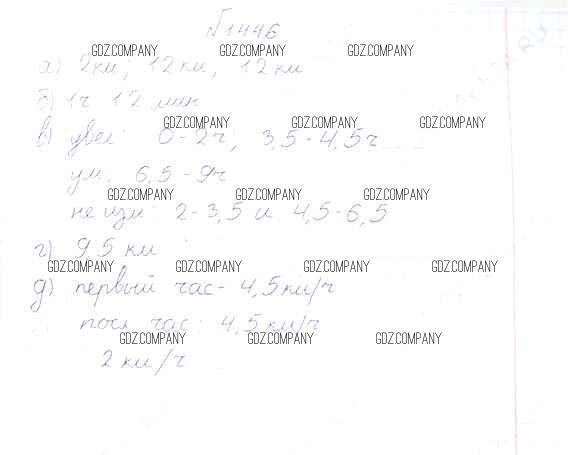 №1446
GDZ.COMPANY GDZ.COMPANY GDZ.COMPANY
а) 2км; 12км, 12км
б) 1ч 12 мин
GDZ.COMPANY GDZ.COMPANY GDZ.COMPANY
в) увел: 0-2ч; 3,5-4,5ч
ум. 6,5-9ч
GDZ.COMPANY GDZ.COMPANY GDZ.COMPANY
не изм: 2-3,5 и 4,5-6,5
г) 9,5 км
GDZ.COMPANY GDZ.COMPANY GDZ.COMPANY GDZ.COMPANY
д) первый час- 4,5км/ч
час: 4,5км/ч
GDZ.COMPANY GDZ.COMPANY GDZ.COMPANY
2км/ч